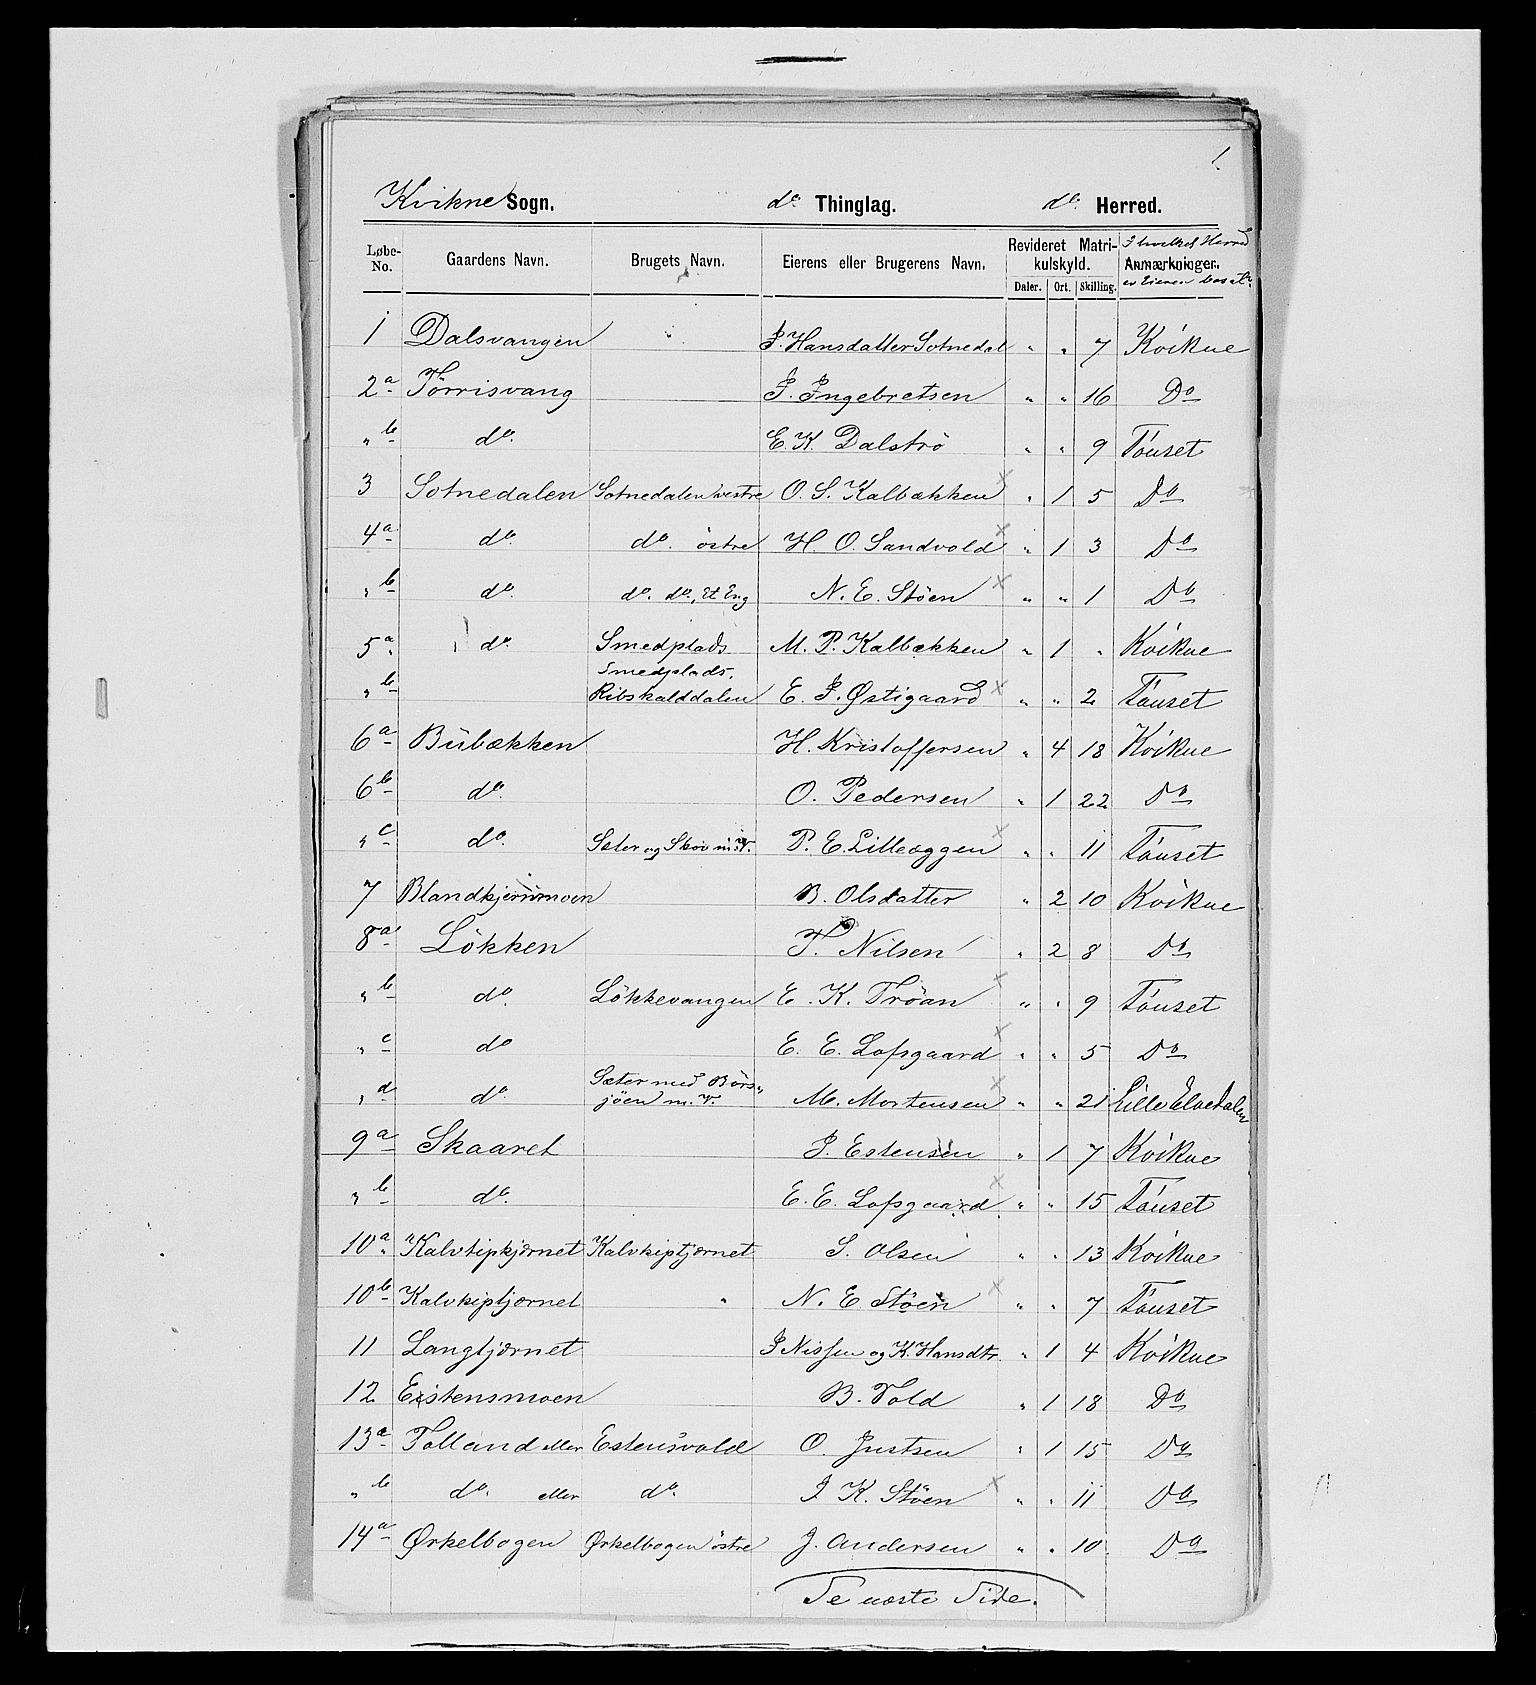 1.
Kvikne Sogn. do Thinglag. do. Herred.
Løbe-No. Gaardens Navn. Brugets Navn. Eierens eller Brugerens Navn. Revideret Matrikulskyld. Daler. Ort. Skilling. I hvilket Herred Anmærkninger. er Eieren bosat.
1 Dalsvangen " P. Hansdatter Sotnedal " " 7 Kvikne
2a Tørrisvang P. Ingebretsen " " 16 Do
" b do. E. K. Dalströ " " 9 Tönset
3 Sotnedalen Sotnedalen vestre O. S. Kalbækken " 1 5 Do
4a do. do. östre H. O. Sandvold " 1 3 Do
" b do. do. do., Et Eng N. E. Stöen " " 1 Do
5a do. Smedplads M. P. Kalbækken " 1 " Kvikne
" b Smedplads, Ribskalddalen E. P. Østigaard " " 2 Tönset
6a Bubækken H. Kristoffersen " 4 18 Kvikne
6b do. O. Pedersen " 1 22 Do
" c do. Sæter og Skov m. V. P. E. Lilleæggen " " 11 Tönset
7 Blandkjernmoen B. Olsdatter " 2 10 Kvikne
8a Lökken T. Nilsen " 2 8 Do
" b do. Lökkevangen E. K. Tröan " " 9 Tönset
" c do E. E. Lofsgaard " " 5 Do
" d do. Sæter med Börsjöen m. V. M. Mortensen " " 21 Lille Elvedalen
9a Skaaret P. Estensen " 1 7 Kvikne
" b do. E. E. Lofsgaard " " 15 Tönset
10a Kalvkipkjærnet Kalvkiptjærnet S. Olsen " " 13 Kvikne
10b Kalvkiptjærnet " N. E Stöen " " 7 Tönset
11 Langtjærnet P Nissen og K. Hansdtr. " 1 4 Kvikne
12 Eistensmoen B. Vold " 1 18 Do
13a Folland eller Estensvold O. Justsen " 1 15 Do
" b do. eller do. I K. Stöen " " 11 Do
14a Ørkelbogen Ørkelbogen östre J. Andersen " " 10 Do
Se næste Side.